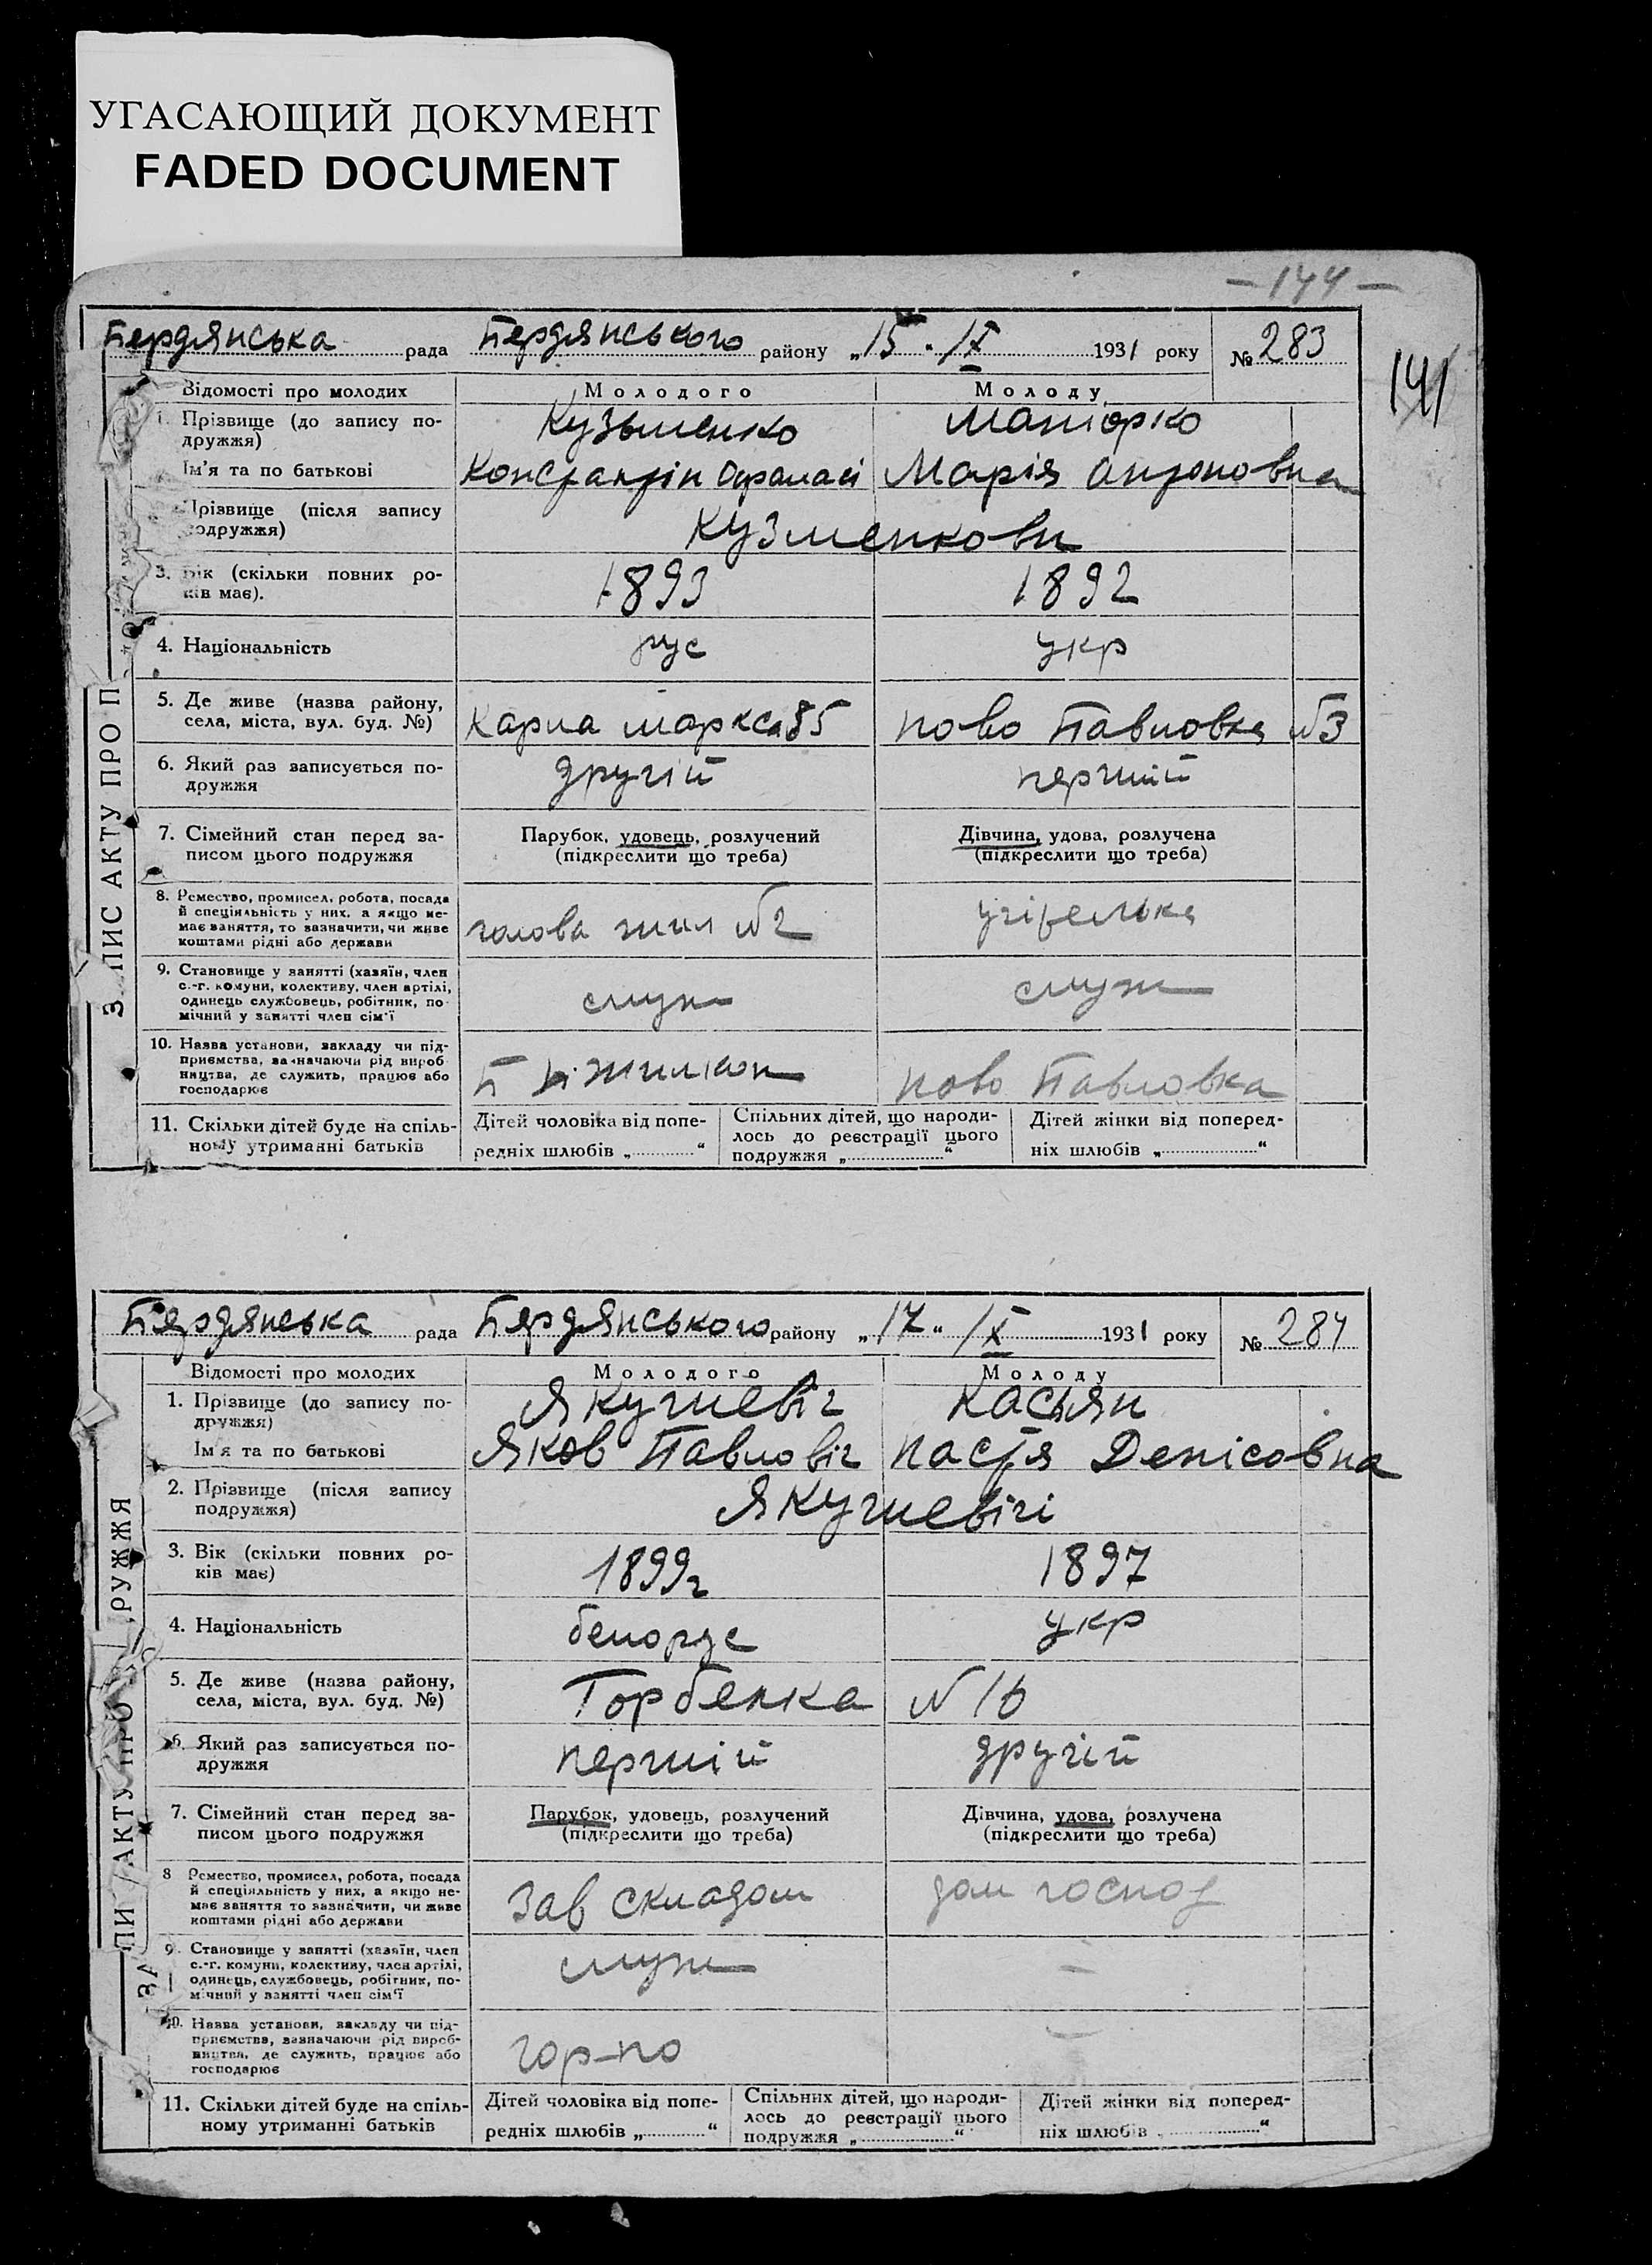 УГАСАЮЩИЙ ДОКУМЕНТ
FADED DOCUMENT
– 144 –
141
Бердянська рада Бердянського району „15“ IX 1931 року № 283
Відомості про молодих Молодого Молоду
1. Прізвище (до запису по-
дружжя) Кузьменко
Ім'я та по батькові Констянтін Марія Антоновна
Прізвище (після запису
подружжя) Кузменкови
3. Вік (скільки повних ро-
ків має). 1893 1892
4. Національність рус укр
5. Де живе (назва району,
села, міста, вул. буд. №) Карла Маркса 85 Ново Павловка №3
6. Який раз записується по-
дружжя другій перший
7. Сімейний стан перед за- Парубок, удовець, розлучений Дівчина, удова, розлучена
писом цього подружжя (підкреслити що треба) (підкреслити що треба)
8. Ремество, промисел, робота, посада
й спеціяльність у них, а якщо не-
має заняття, то зазначити, чи живе
коштами рідні або держави голова жил №2 учітелька
9. Становище у занятті (хазяїн, член
с.-г. комуни, колективу, член артілі,
одинець службовець, робітник, по-
мічний у занятті член сім'ї служ служ
10. Назва установи, закладу чи під-
приємства, зазначаючи рід вироб-
ництва, де служить, працює або
господарює Ново Павловка
11. Скільки дітей буде на спіль- Дітей чоловіка від попе- Спільних дітей, що народи- Дітей жінки від поперед-
ному утриманні батьків редніх шлюбів „ “ лось до реєстрації цього ніх шлюбів „ “
подружжя „ “
ЗАПИС АКТУ ПРО П
Бердянська рада Бердянського району „17“ IX 1931 року № 284
Відомості про молодих Молодого Молоду
1. Прізвище (до запису по-
дружжя) Якушевіч Касьян
Ім'я та по батькові Яков Павловіч Настя Денісовна
2. Прізвище (після запису
подружжя) Якушевічі
3. Вік (скільки повних ро-
ків має) 1899г 1897
4. Національність белорус укр
5. Де живе (назва району,
села, міста, вул. буд. №) Горбенка № 16
6. Який раз записується по-
дружжя першій другій
7. Сімейний стан перед за- Парубок, удовець, розлучений Дівчина, удова, розлучена
писом цього подружжя (підкреслити що треба) (підкреслити що треба)
8 Ремество, промисел, робота, посада
й спеціяльність у них, а якщо не-
має заняття то зазначити, чи живе
коштами рідні або держави Зав складом дом господ
9. Становище у занятті (хазяїн, член
с.-г. комуни, колективу, член артілі,
одинець, службовець, робітник, по-
мічний у занятті член сім'ї служ –
10. Назва установи, закладу чи під-
приємства, зазначаючи рід вироб-
ництва, де служить, працює або
господарює гор-по –
11. Скільки дітей буде на спіль- Дітей чоловіка від попе- Спільних дітей, що народи- Дітей жінки від поперед-
ному утриманні батьків редніх шлюбів „ “ лось до реєстрації цього ніх шлюбів „ “
подружжя „ “